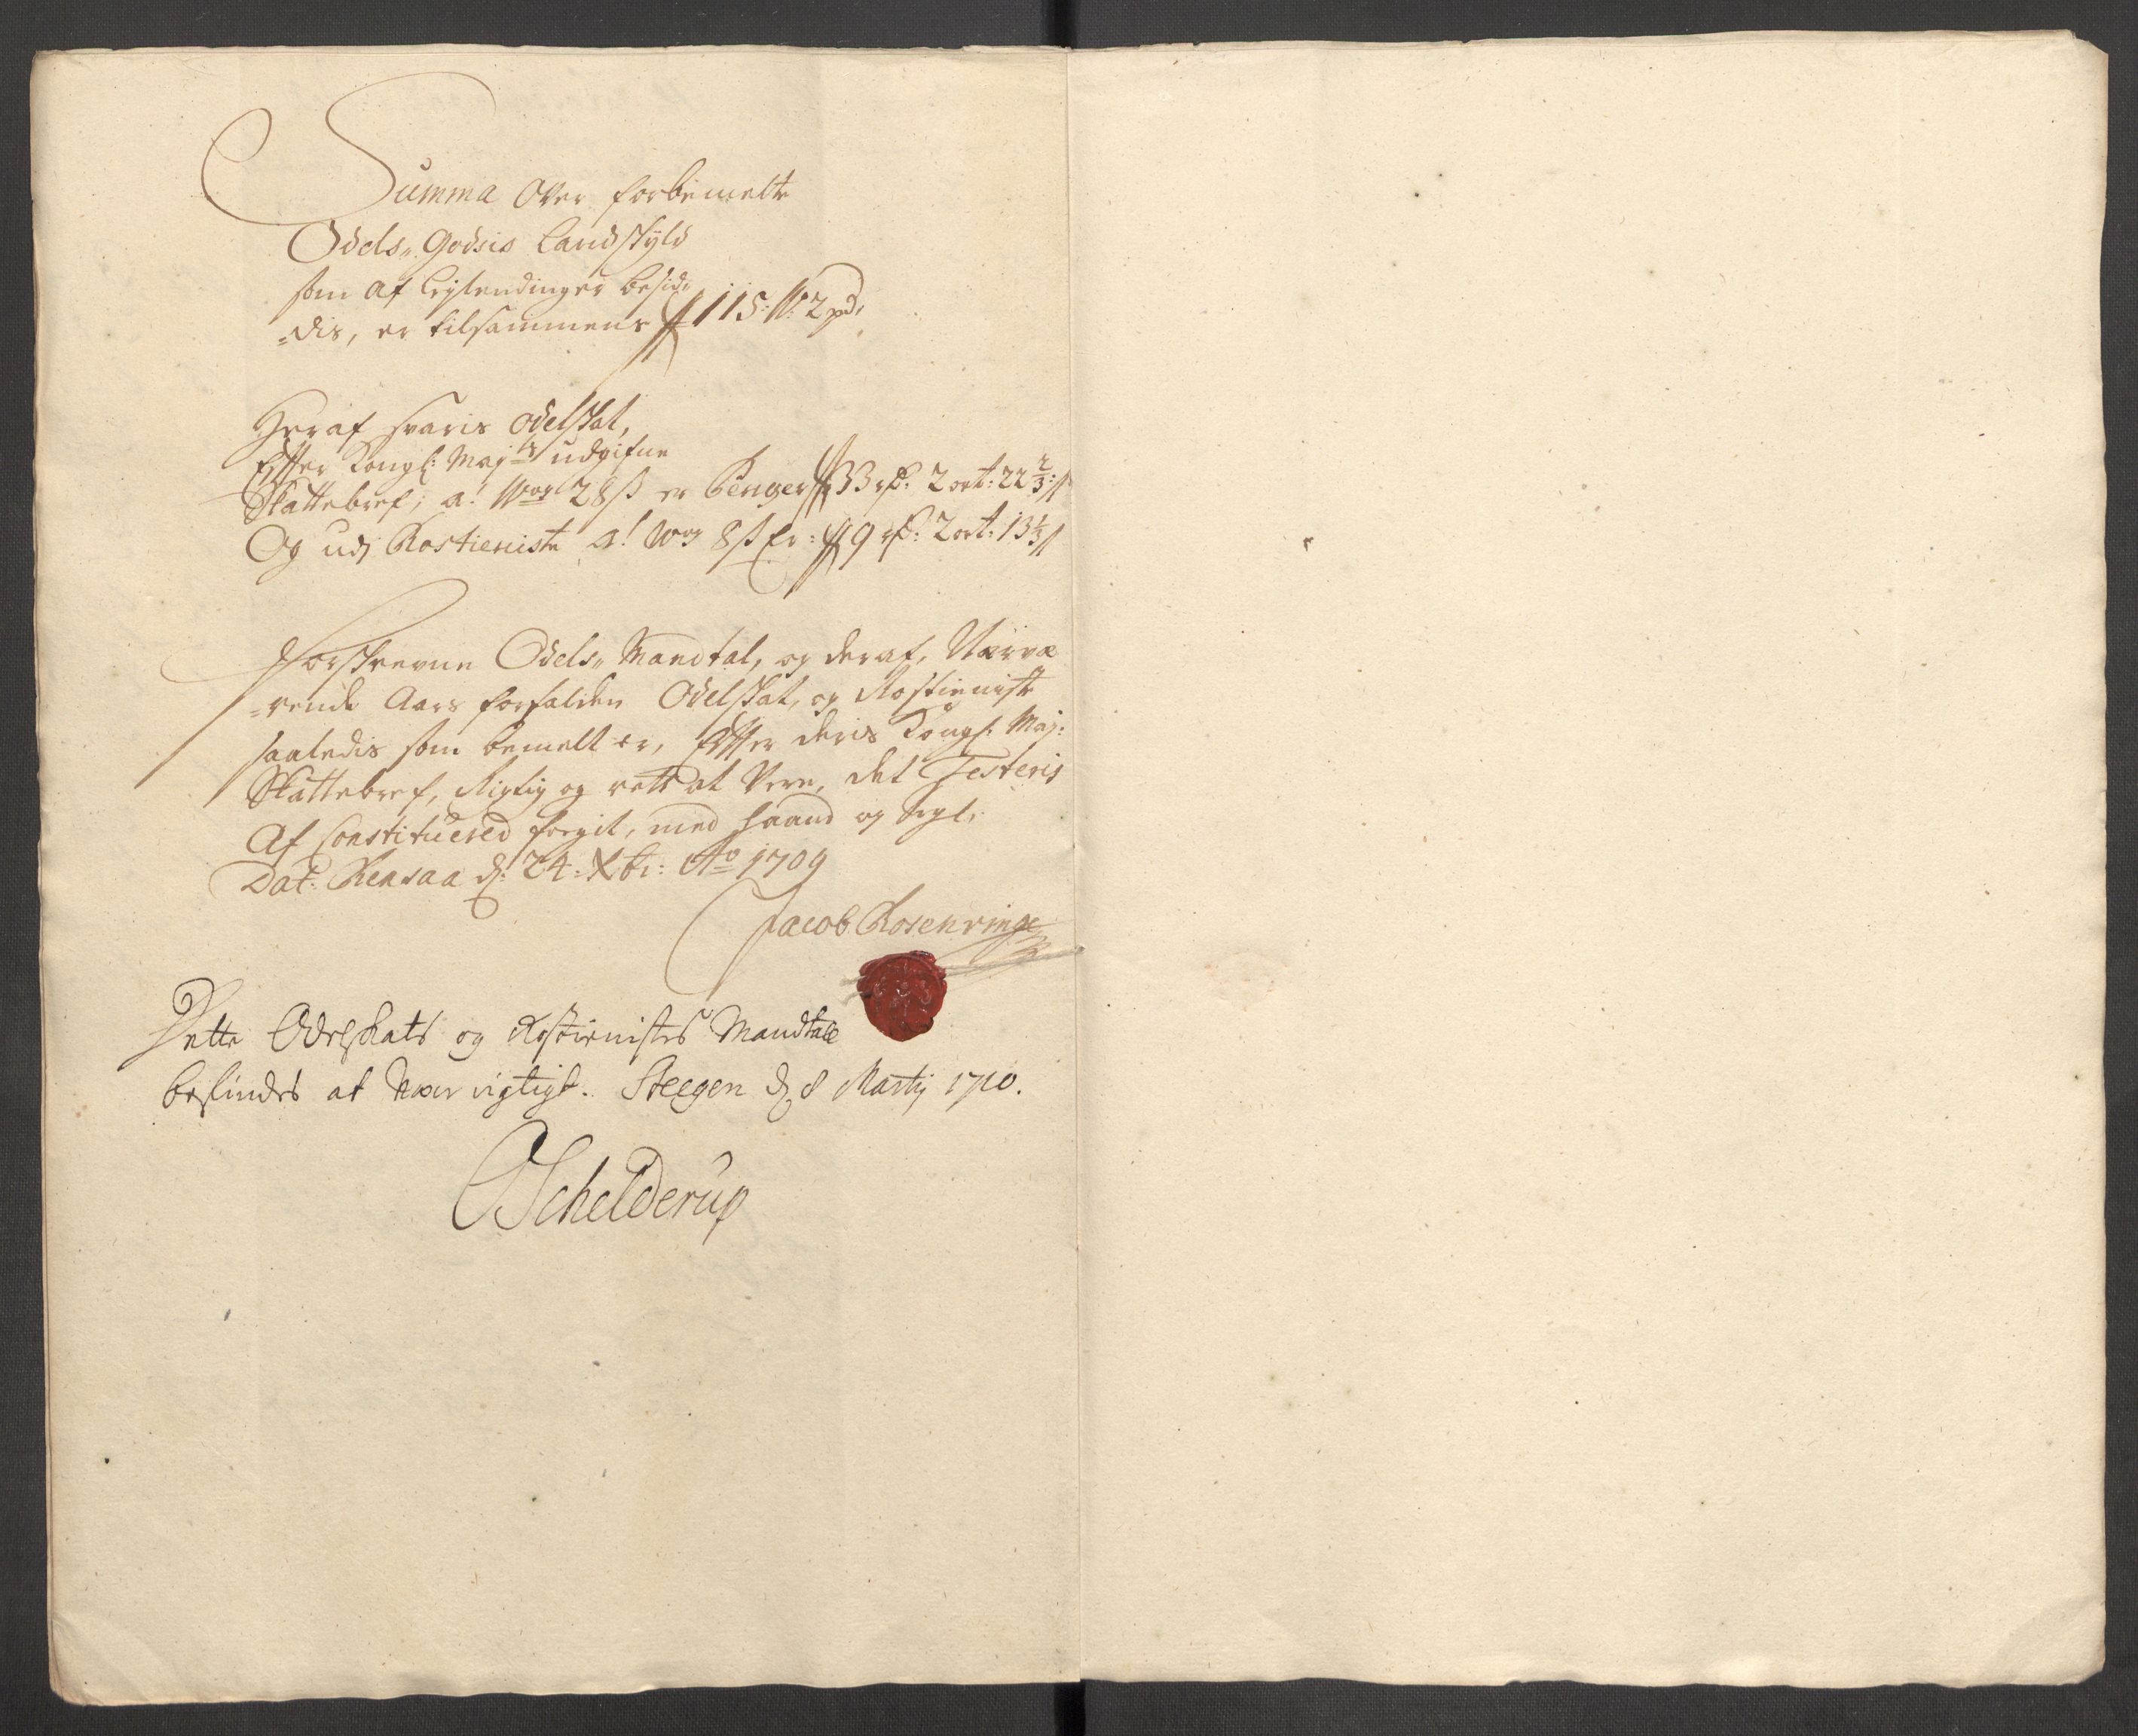 Summa Over forbemelte
Odels„ Godsis Landskyld
som af Leylendinger besid„
„dis, er tilsammens 115: W: 2 pd,
Heraf svaris Odelskat,
Effter Kongl: Maj:ts udgifne
Skattebref, a! Wog 28 ß er Penger 33 rd: 2 ort: 22 2/3: ß
Og udj Rostieniste a! Wog 8 ß Er: 9 rd: 2 ort: 13 1/3 ß
Forskrevne Odels„ Mandtal, og deraf, Nærvæ
„rende Aars forfalden Odelskat, og Rostieniste
saaledis som bemelt er, Effter deris Kongl: Maj:
Skattebref, Rigtig og rett at Vere, det Testeris
Af Constituered forgit, med haand og Segl.
Dat: Rensaa d: 24: Xbr: Ao 1709
Jacob Rosenvinge
Dette Odelskats og Rostienistes Mandtall
befindes at være rigtigt. Steegen d. 8 Martij 1710.
Schelderup